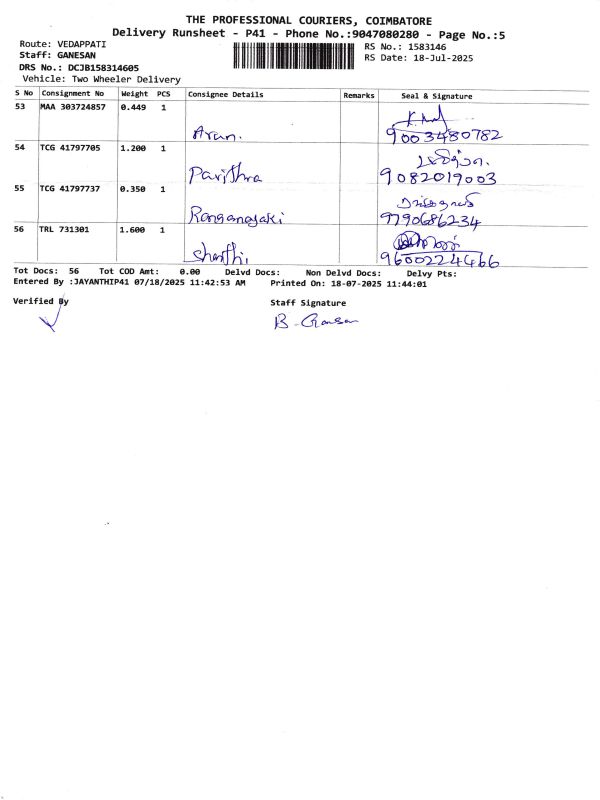 THE PROFESSIONAL COURIERS, COIMBATORE
Delivery Runsheet - P41 - Phone No.:9047080280 - Page No.:5
Route: VEDAPPATI
RS No.: 1583146
Staff: GANESAN
RS Date: 18-Jul-2025
DRS No.: DCJB158314605
Vehicle: Two Wheeler Delivery
S No Consignment No Weight PCS Consignee Details Remarks Seal & Signature
53 MAA 303724857 0.449 1
Arun. 9003480782
54 TCG 41797705 1.200 1
Pavithra 9082019003
55 TCG 41797737 0.350 1
Ranganayaki 9790686234
56 TRL 731301 1.600 1
Shanthi 9600224466
Tot Docs: 56 Tot COD Amt: 0.00 Delvd Docs: Non Delvd Docs: Delvy Pts:
Entered By :JAYANTHIP41 07/18/2025 11:42:53 AM Printed On: 18-07-2025 11:44:01
Verified By Staff Signature